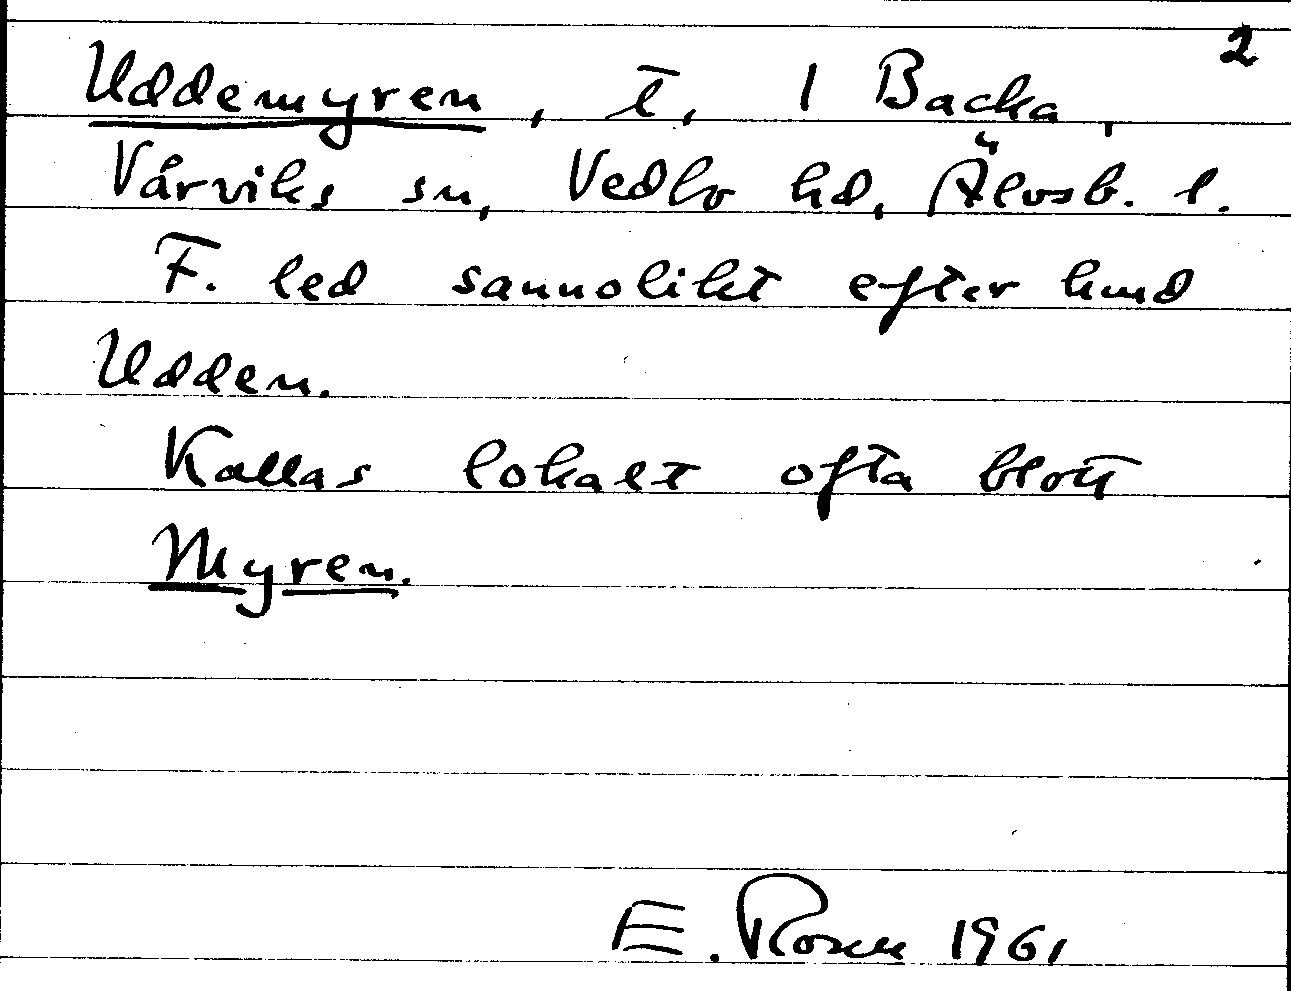 2
Uddemyren, t, 1 Backa,
Vårviks sn, Vedbo hd, Älvsb. l.
F. led sannolikt efter hmd
Udden.
Kallas lokalt ofta blott
Myren.
E. Rosen 1961